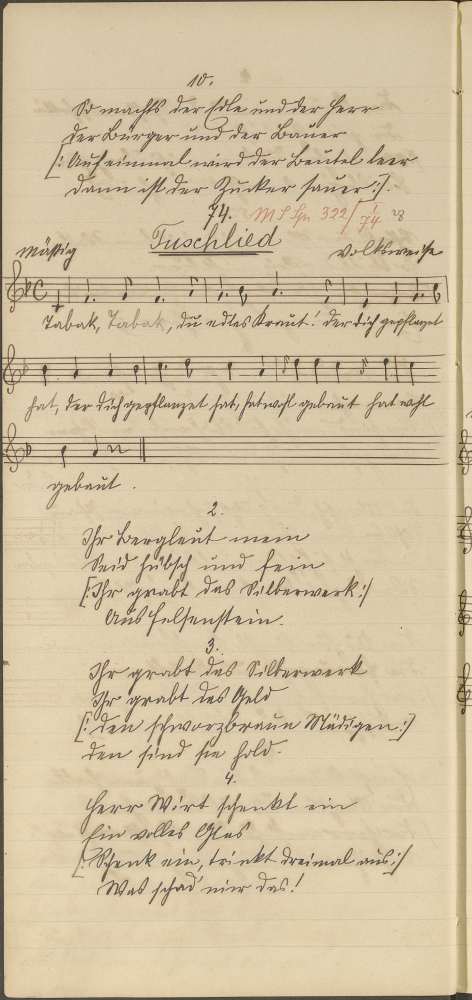 10.
So machts der Edle und der Herr
der Bürger und der Bauer
[: Auf einmal wird der Beutel leer
dann ist der Zucker sauer :].
74. 322/74 28
Tuschlied
Mäßig Volksweise
Tabak, Tabak, du edles Kraut! der dich gepflanzet
hat, der dich gepflanzet hat, hat wohl gebaut hat wohl
gebaut.
2.
Ihr Bergleut mein
Seid hübsch und fein
[: Ihr grabt das Silberwerk :]
Aus Felsenstein.
3.
Ihr grabt das Silberwerk
Ihr grabt das Geld
[: den schwarzbraun Mädigen :]
den sind sie hold.
4.
Herr Wirt schenkt ein
Ein volles Glas
[: Schenk ein, trinkt dreimal aus :]
Was schad' mir das!